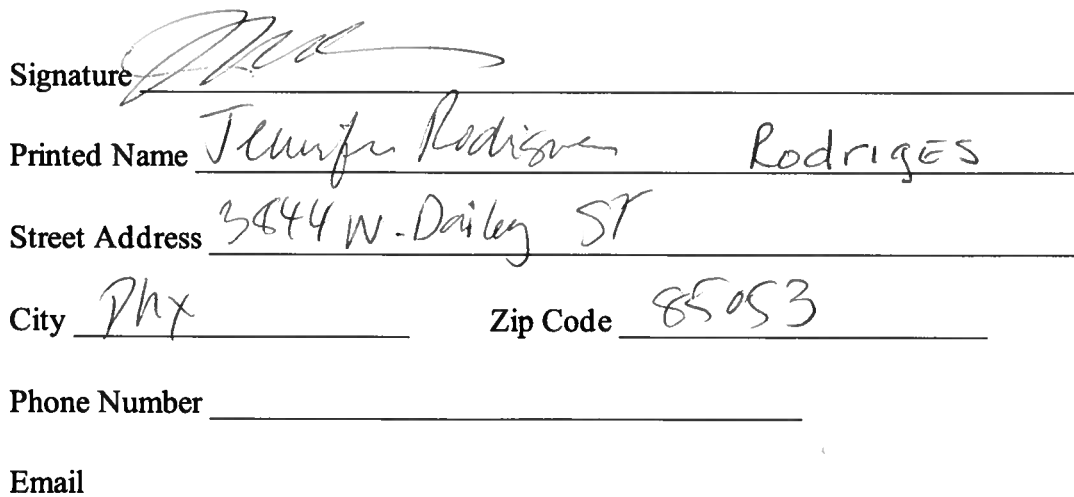 Signature
Printed Name Jennifer Rodriguez RodrigES
Street Address 3844 W. Dailey ST
City Phx Zip Code 85053
Phone Number
Email